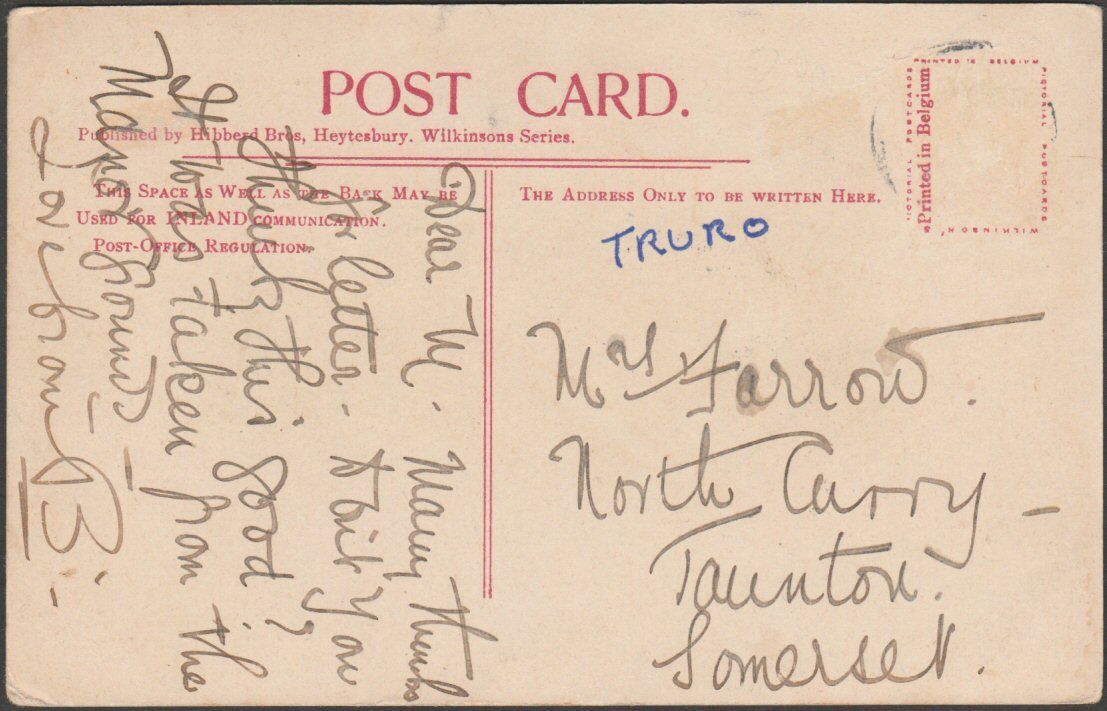 POST CARD.
Published by Hibberd Bros, Heytesbury. Wilkinsons Series.
This Space as Well as the Back May be
Used for INLAND communication.
Post-Office Regulation.
The Address Only to be written Here.
PRINTED IN BELGIUM
PICTORIAL POSTCARDS
WILKINSON'
PICTORIAL POSTCARDS
Printed in Belgium
TRURO
Mrs Farrow.
North Curry -
Taunton.
Somerset.
Dear M. Many thanks
for letter. Don't you
think this good;
It was taken from the
Manor Grounds -
Love from B. -